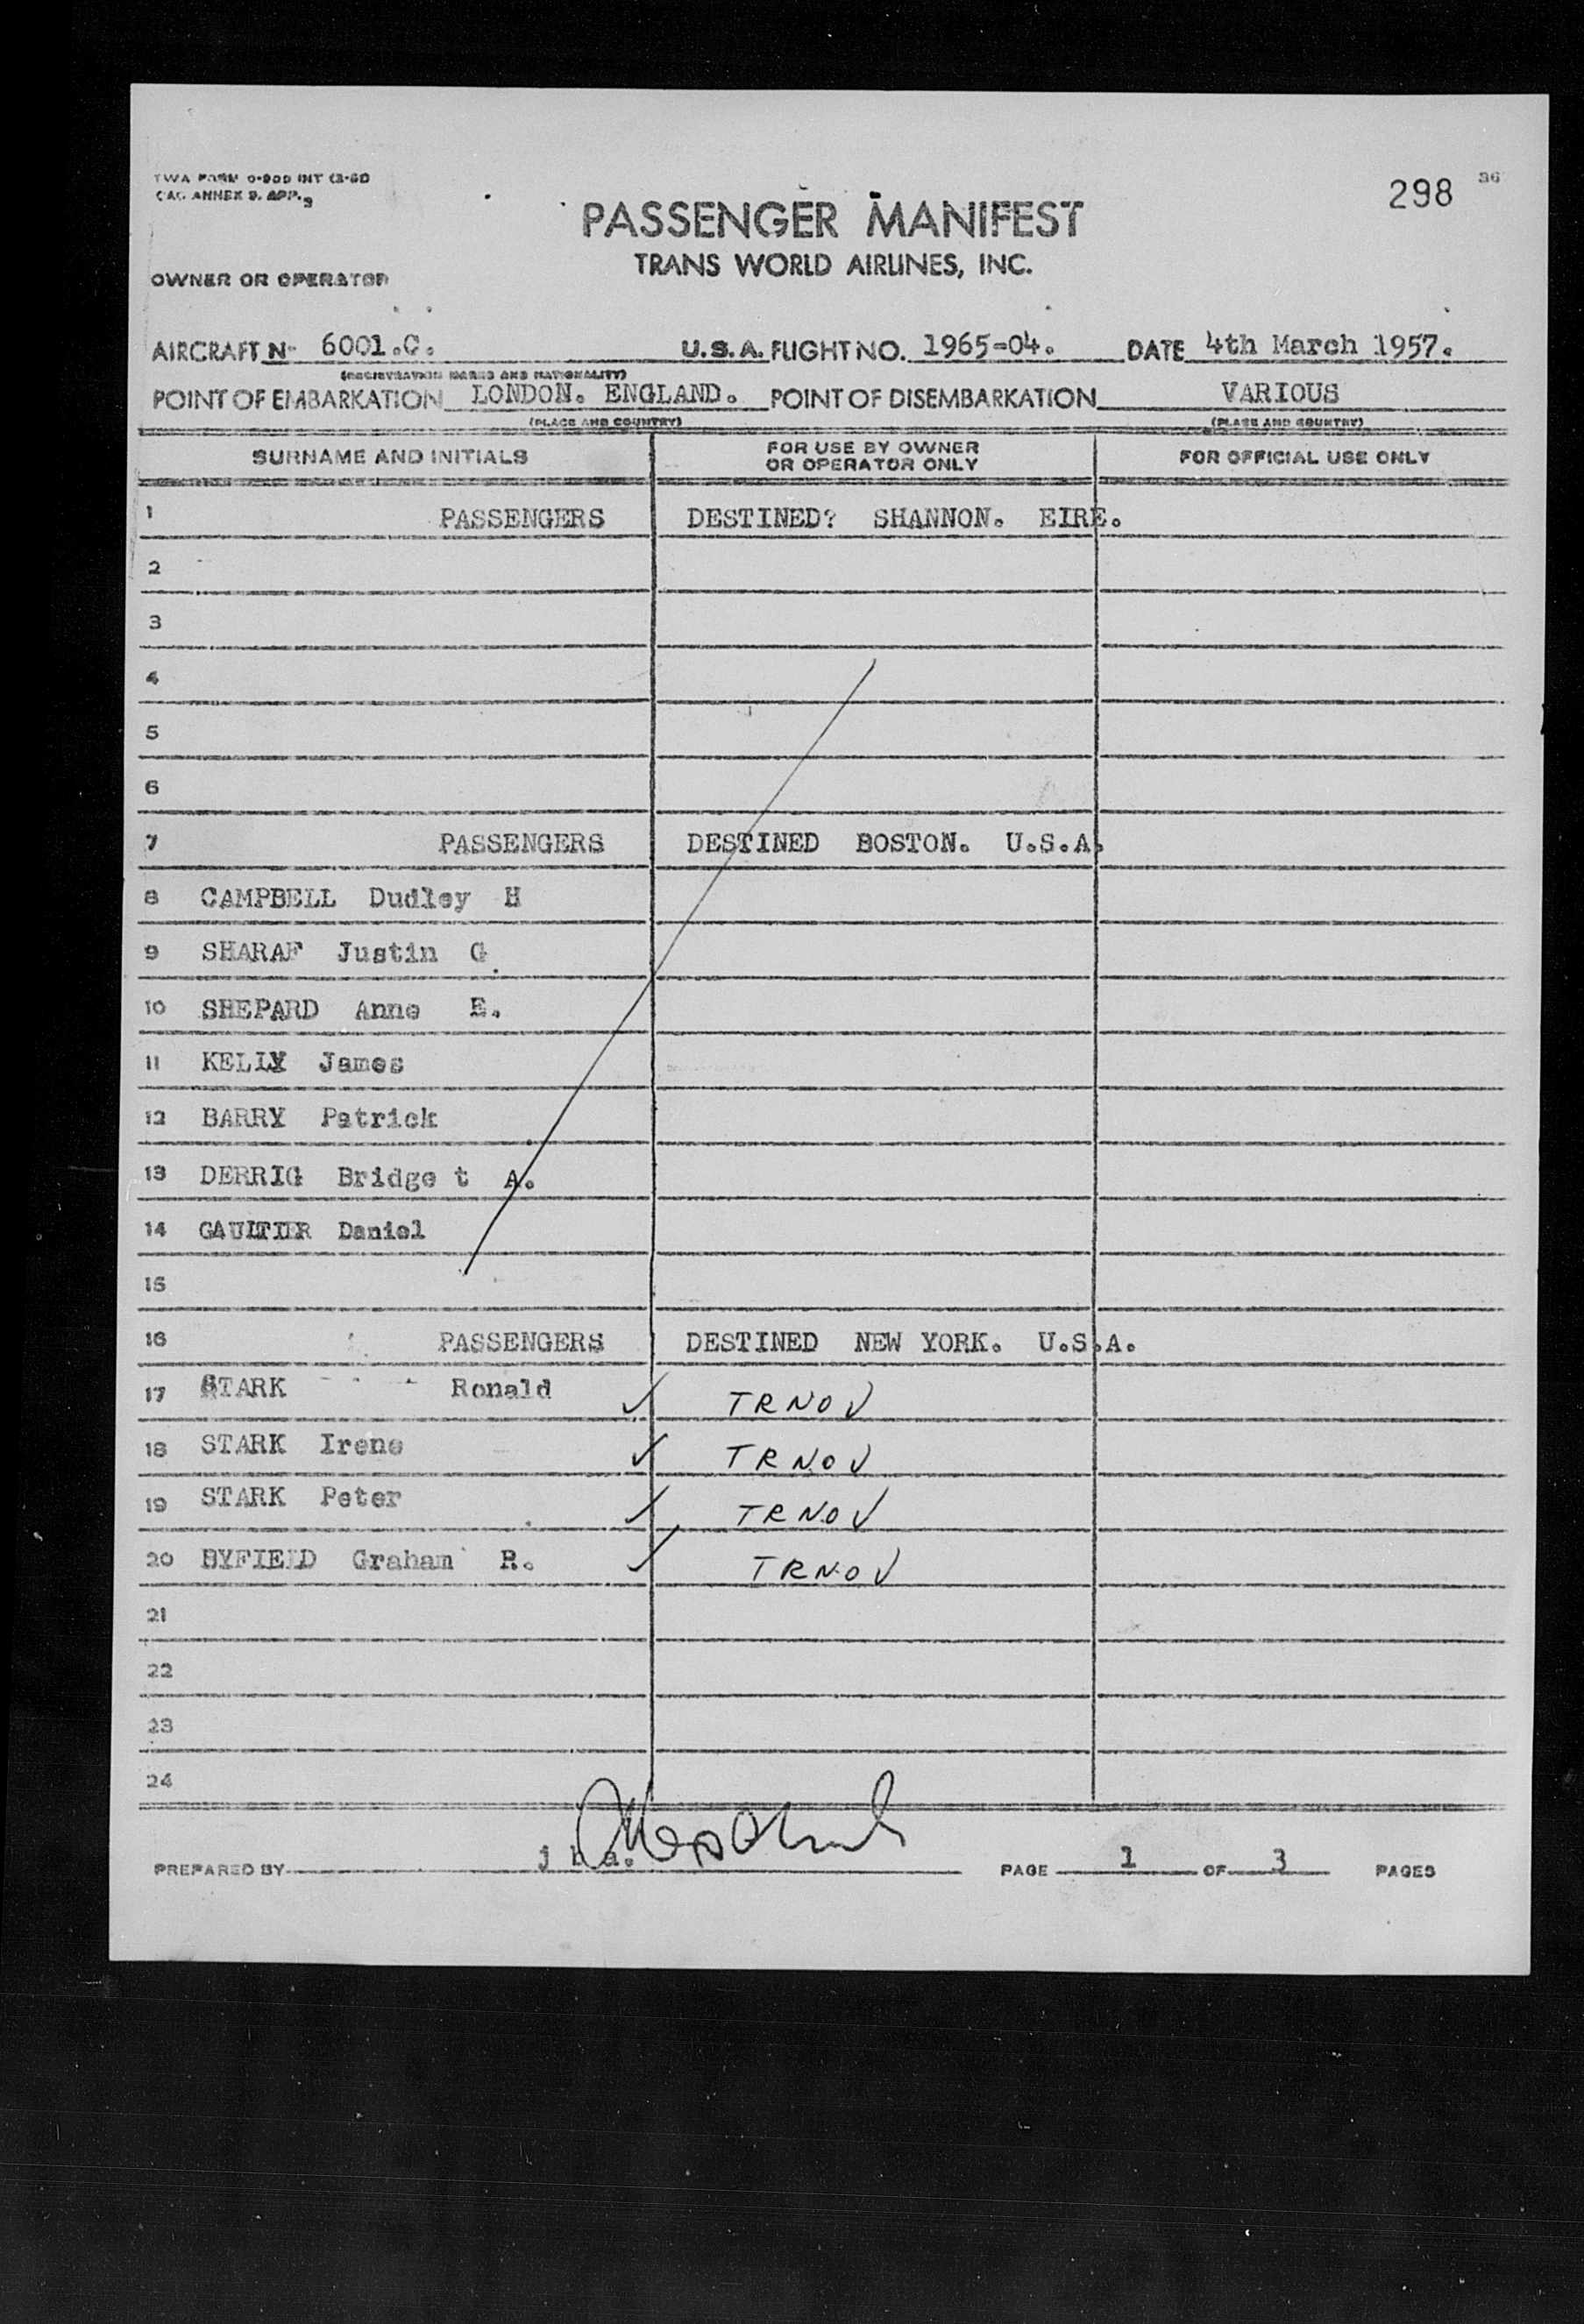 TWA FORM
CAO ANNEX 9. APP. 3
298 36
PASSENGER MANIFEST
TRANS WORLD AIRLINES, INC.
OWNER OR OPERATOR
AIRCRAFT N- 6001.C. U.S.A. FLIGHT NO. 1965-04. DATE 4th March 1957.
(REGISTRATION MARKS AND NATIONALITY)
POINT OF EMBARKATION LONDON. ENGLAND. POINT OF DISEMBARKATION VARIOUS
(PLACE AND COUNTRY) (PLACE AND COUNTRY)
SURNAME AND INITIALS FOR USE BY OWNER OR OPERATOR ONLY FOR OFFICIAL USE ONLY
1 PASSENGERS DESTINED? SHANNON. EIRE.
2
3
4
5
6
7 PASSENGERS DESTINED BOSTON. U.S.A.
8 CAMPBELL Dudley H
9 SHARAF Justin G
10 SHEPARD Anne E.
11 KELLY James
12 BARRY Patrick
13 DERRIG Bridge t A.
14 GAULTIER Daniel
15
16 PASSENGERS DESTINED NEW YORK. U.S.A.
17 STARK Ronald ✓ TRNO ✓
18 STARK Irene ✓ TRNO ✓
19 STARK Peter ✓ TRNO ✓
20 BYFIELD Graham R. ✓ TRNO ✓
21
22
23
24
PREPARED BY PAGE 1 OF 3 PAGES